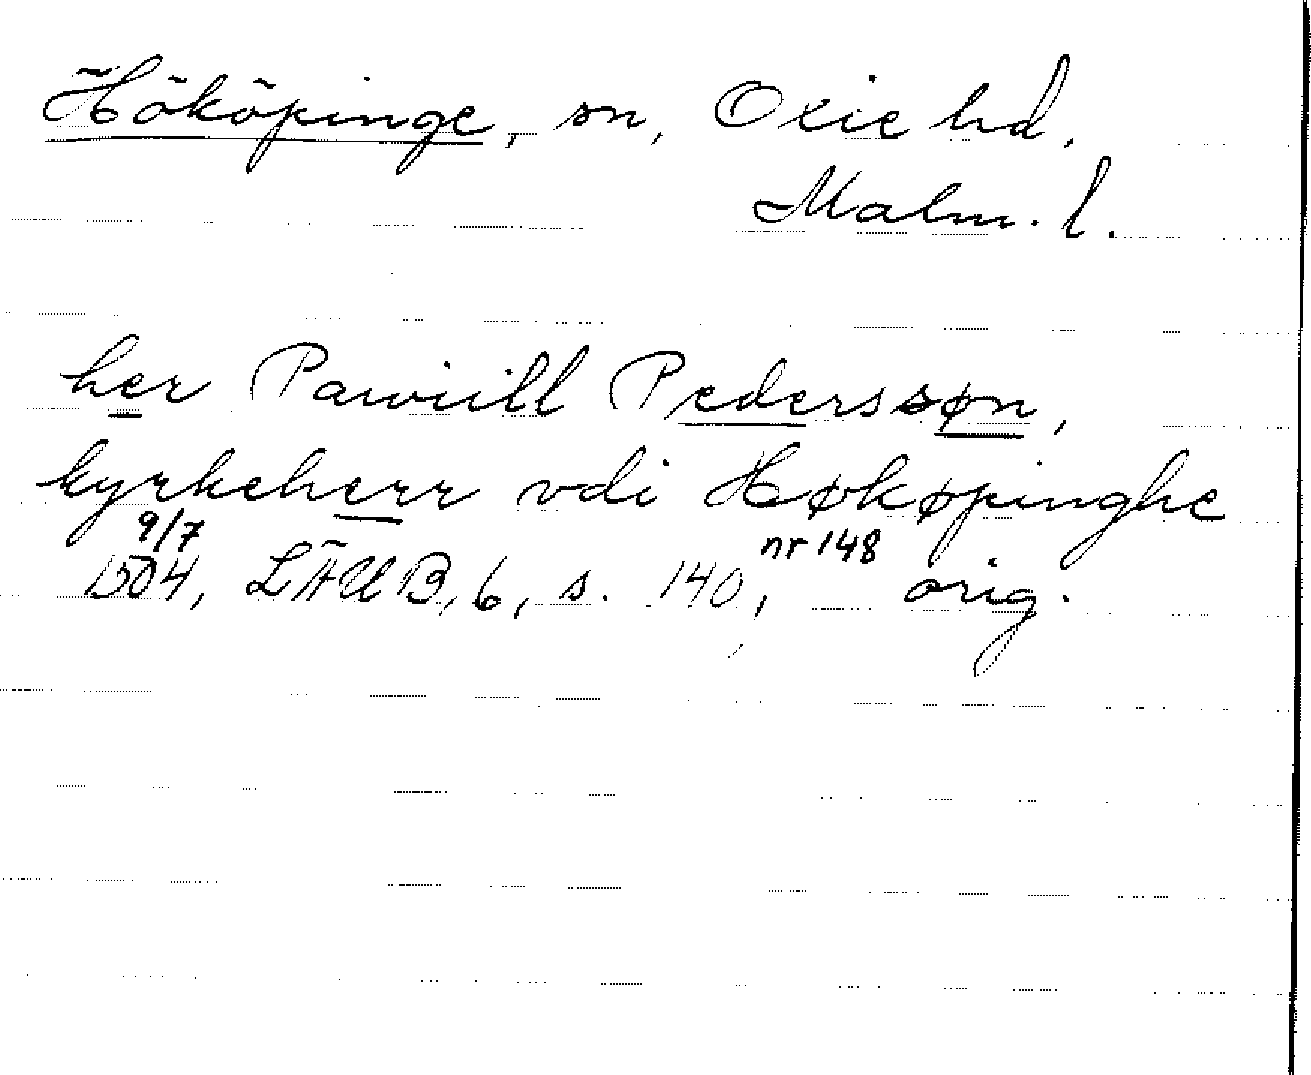 Hököpinge, sn, Oxie hd.
Malm. l.
her Pawiill Pederssøn,
kyrkeherr vdi Høkøpinghe
9/7
1504, LÄUB, 6, s. 140, nr 148 orig.